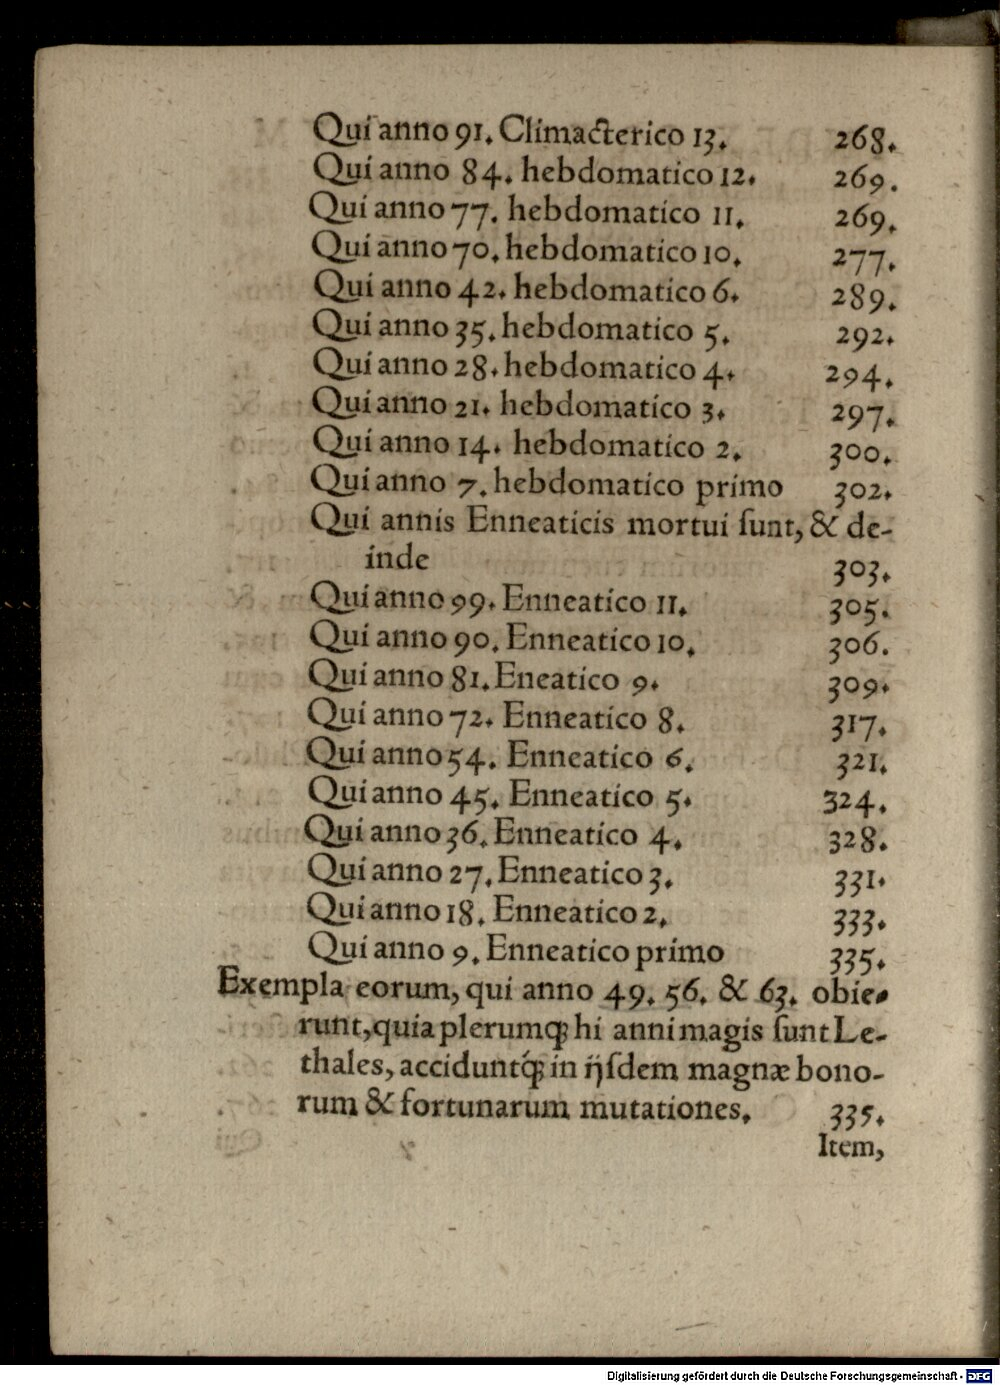 Qui anno 91. Climacterico 13. 268.
Qui anno 84. hebdomatico 12. 269.
Qui anno 77. hebdomatico 11. 269.
Qui anno 70. hebdomatico 10. 277.
Qui anno 42. hebdomatico 6. 289.
Qui anno 35. hebdomatico 5. 292.
Qui anno 28. hebdomatico 4. 294.
Qui anno 21. hebdomatico 3. 297.
Qui anno 14. hebdomatico 2. 300.
Qui anno 7. hebdomatico primo 302.
Qui annis Enneaticis mortui ſunt, & de-
inde 303.
Qui anno 99. Enneatico 11. 305.
Qui anno 90. Enneatico 10. 306.
Qui anno 81. Eneatico 9. 309.
Qui anno 72. Enneatico 8. 317.
Qui anno 54. Enneatico 6. 321.
Qui anno 45. Enneatico 5. 324.
Qui anno 36. Enneatico 4. 328.
Qui anno 27. Enneatico 3. 331.
Qui anno 18. Enneatico 2. 333.
Qui anno 9. Enneatico primo 335.
Exempla eorum, qui anno 49. 56. & 63. obie-
runt, quia plerumq; hi anni magis ſunt Le-
thales, acciduntq́; in ijſdem magnæ bono-
rum & fortunarum mutationes. 335.
Item,
Digitalisierung gefördert durch die Deutsche Forschungsgemeinschaft - DFG